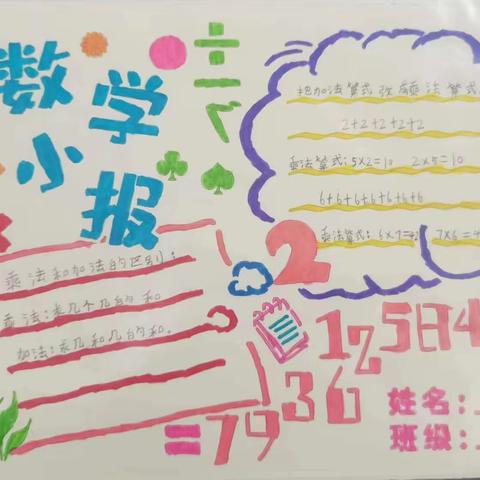 数学
小报
把加法算式改乘法算式
2+2+2+2+2
乘法算式:5×2=10 2×5=10
6+6+6+6+6+6+6
乘法算式:6×7=42 7×6=4
乘法和加法的区别:
乘法:求几个几的和
加法:求几和几的和.
2
12584
36
=79
姓名:
班级: